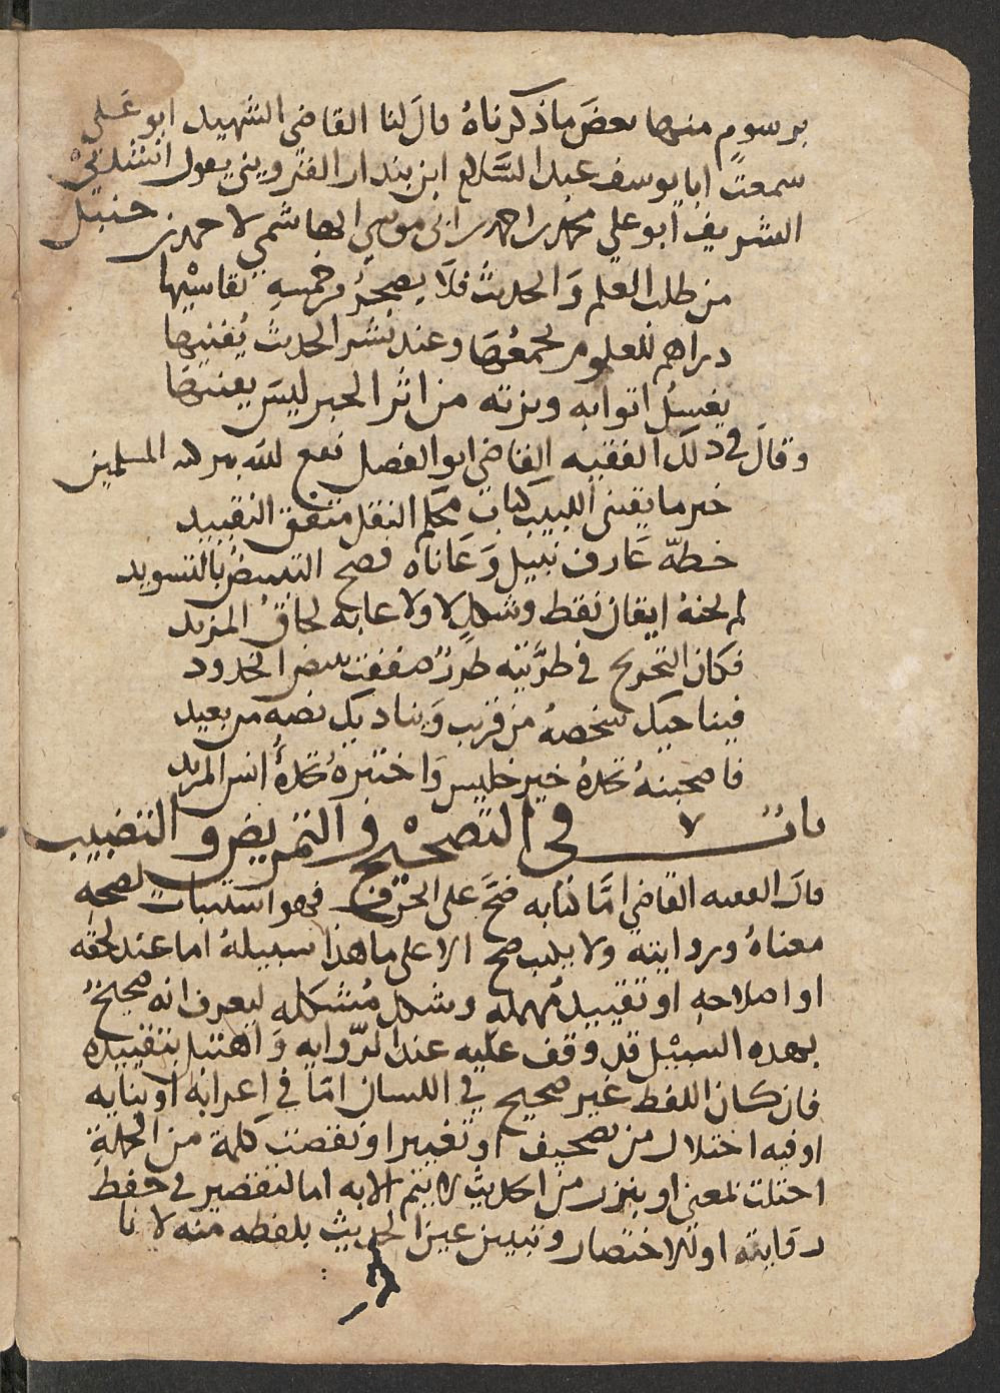 برسوم منها بعض ما ذكرناه قال لنا القاضي الشهيد ابو علي
سمعت ابا يوسف عبد السلام ابن بندار القزويني يقول انشدني
الشريف ابو علي محمد بن احمد بن ابي موسي الهاشمي لاحمد بن حنبل
من طلب العلم والحديث فلا يضجر من خمسه يقاسيها
دراهم للعلوم يجمعها وعند نشر الحديث يفنيها
يغسل اثوابه وبزته من اثر الحبر ليس ينقيها
وقال في ذلك الفقيه القاضي ابو الفضل نفع الله به المسلمين
خير ما يقتني اللبيب كتاب محكم النقل متقن التقييد
خطه عارف نبيل وعاناه فصح التبييض بالتسويد
لم يخنه ايقان نقط وشكل لا ولا عابه لحاق المزيد
فكان التخريج في طرتيه طرر صففت ببيض الخدود
فيناجيك شخصه من قريب ويناديك نصه من بعيد
فاصحبنه تجده خير جليس واختبره تجده انس المريد
باب في التصحيح والتمريض والتضبيب
قال الفقيه القاضي اما كتابه صح على الحرف فهو استثبات لصحه
معناه وروايته ولا يكتب صح الا على ما هذا سبيله اما عند لحقه
او اصلاحه او تقييد مهمله وشكل مشكله ليعرف انه صحيح
بهذه السبيل قد وقف عليه عند الروايه واهتبل بتقييده
فان كان اللفظ غير صحيح في اللسان اما في اعرابه او بنايه
او فيه اختلال من تصحيف او تغيير او نقصت كلمة من الجملة
اختلت المعني او بتر من الحديث ما لا يتم الا به اما لتقصير في حفظ
روايته او للاختصار وتبيين عين الحديث بلفظه منه لا يا